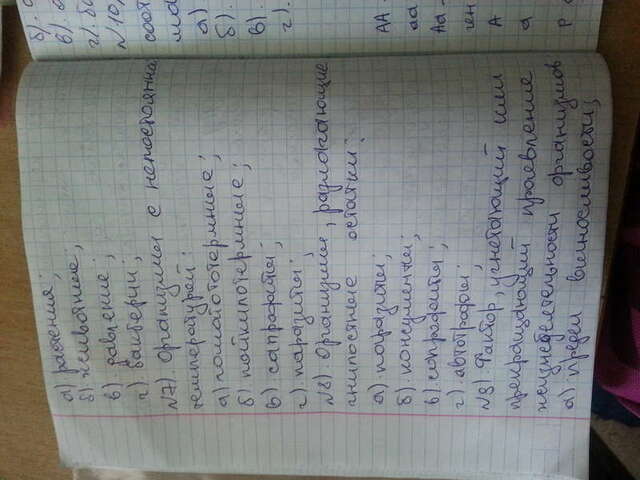 а) растения;
б) животные;
в) давление;
г) бактерии;
№7). Организмы с непостоянна
температурой:
а) гомойототермные;
б) пойкилотермные;
в). сапрофиты;
г). паразиты;
№8). Организмы, разлагающие
гнилостные остатки:
а). паразиты;
б). консументы;
в). сапрофиты;
г). автотрофы;
№9). Фактор, угнетающий или
прекращающий проевление
жизнедеятельности организмов
а) предел выносливости;
б).
в).
г). ба
№10)
соот
а)
б).
в).
г).
АА
аа
Аа -
ген
А
а
Р